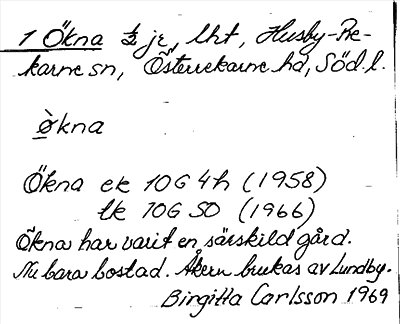 1 Ökna ½ je, lht, Husby-Re-
karne sn, Österrekarne hd, Söd. l.
ö̀kna
Ökna ek 10G 4h (1958)
tk 10G SO (1966)
Ökna har varit en särskild gård.
Nu bara bostad. Åkern brukas av Lundby.
Birgitta Carlsson 1969